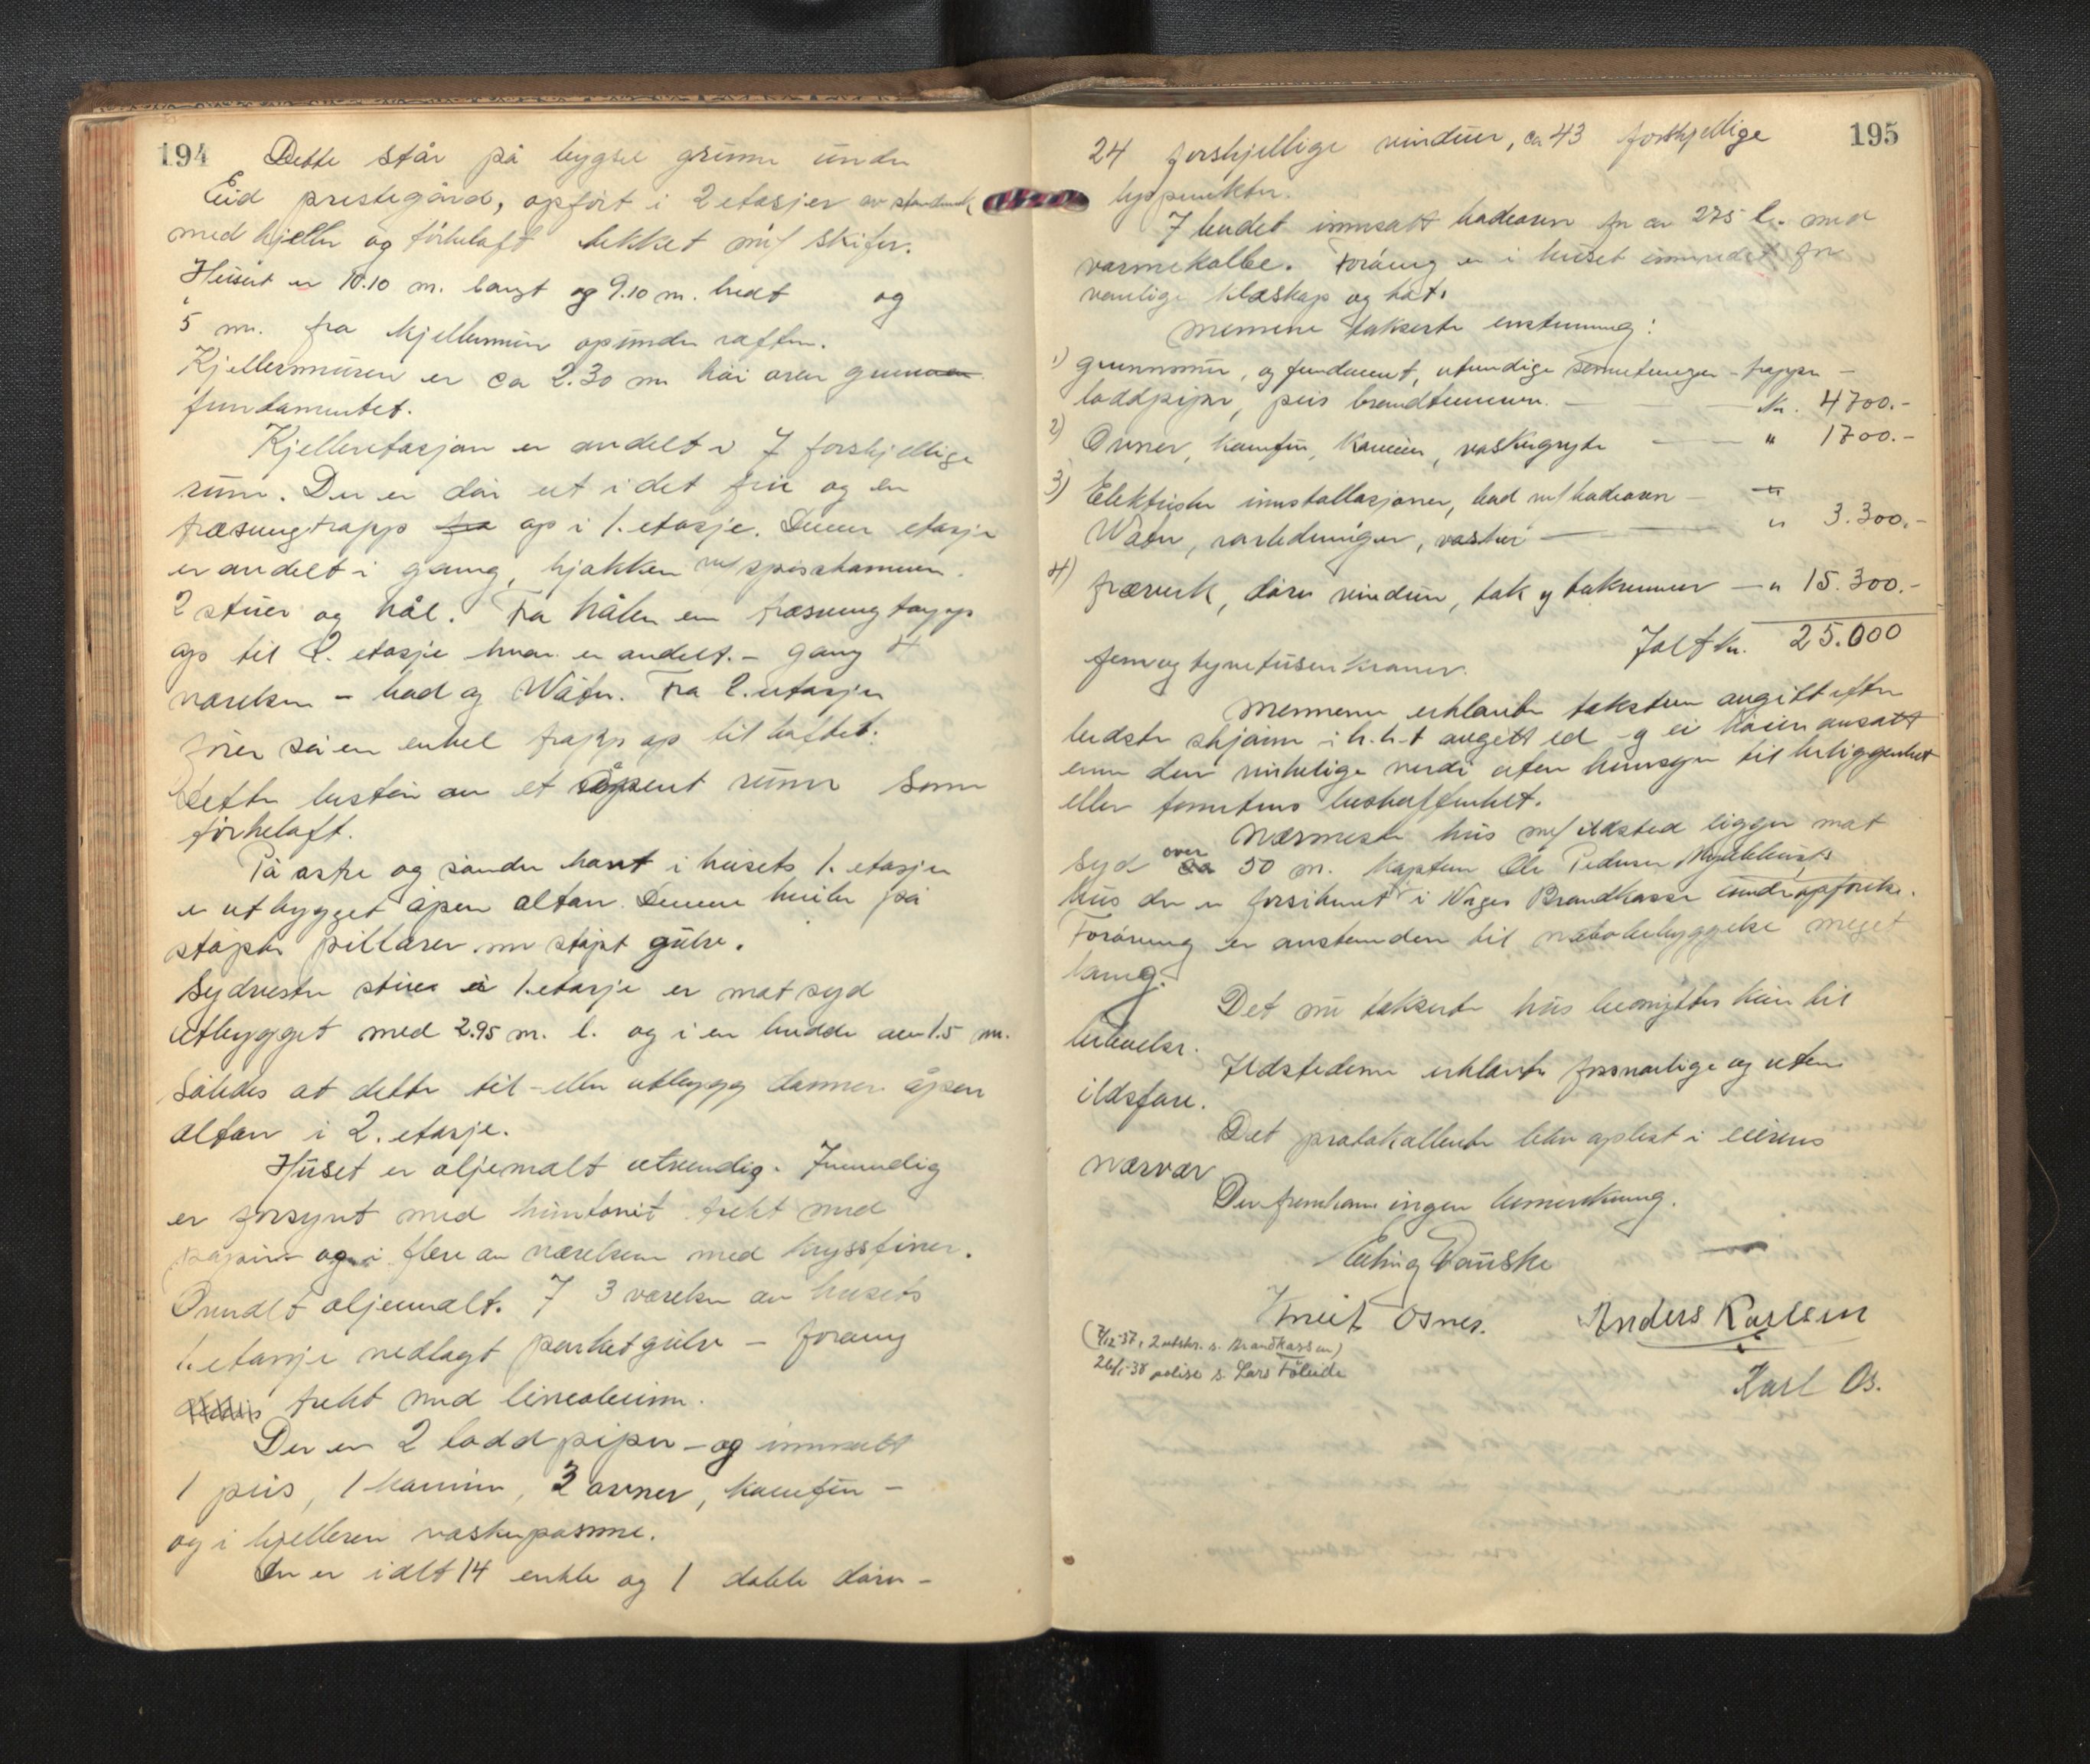 194
Dette står på bygsel grunn under
Eid prestegård, opført i 2 etasjer av
med kjeller og tørkeloft tekket m/ skifer.
Huset er 10.10 m. langt og 9.10 m. bredt og
5 m. fra kjellermur opunder raften.
Kjellermuren er ca 2.30 m høi over
fundamentet.
Kjelleretasjen er avdelt i 7 forskjellige
rum. Der er dør ut i det fri og en
træsvingtrapp fra op i 1. etasje. Denne etasje
er avdelt i gang, kjøkken m/ spisskammer.
2 stuer og hål. Fra hålen en træsvingtrapp
op til 2. etasje hvor er avdelt. - gang 4
værelser - bad og Wåtr. Fra 2. etasjen
fører så en enkel trapp op til loftet.
Dette består av et åpent rum som
tørkeloft.
På østre og søndre kant i husets 1. etasje
er utbygget åpen altan. Denne hviler på
støpte pillarer m støpt gulv.
Sydvestre stue i 1. etasje er mot syd
utbygget med 2.95 m. l. og i en bredde av 1.5 m.
Således at dette til- eller utbygg danner åpen
altan i 2. etasje.
Huset er oljemalt utvendig. Innvendig
er forsynt med huntonit trekt med
papir og i flere av værelsene med kryssfiner.
Omalt oljemalt. I 3 værelser av husets
1. etasje nedlagt parketgulv - forøvrig
trekt med linoleum.
Der er 2 lodd piper - og innsatt
1 peis, 1 kamin, 3 ovner, komfür -
og i kjelleren vaskepanne.
Der er ialt 14 enkle og 1 doble dører -
195
24 forskjellige vinduer, ca 43 forskjellige
lyspunkter.
I badet innsatt badeovn for ca 275 l. med
varmekolbe. Forøvrig er i huset innredet for
vanlige klæskap og
Mennene takserte enstemmig:
1) grunnmur, og fundament, utvendige - trapper -
loddpiper, peis brandtennur. - Kr. 4700.-
2) Ovner, komfür, Kamin, vaskegryte - " 1700.-
3) Elektriske innstallasjoner, bad m/ badeovn - "
Wåtr, rørledninger, vasker - " 3.300.-
4) træverk, dører vinduer, tak og takrenner - " 15.300.-
Ialt kr. 25.000
fem og tyvetusen kroner.
Mennene erklærte taksten avgitt efter
bedste skjønn i h.h.t avgitt ed - og ei høiere ansatt
enn den virkelige verdi uten hensyn til beliggenhet
eller tomtens beskaffenhet.
Nærmeste hus m/ ildsted ligger mot
Syd over 50 m. kaptein Ole Pedersen Myklebusts
hus der er forsikret i Norges Brandkasse
Forøvrig er avstanden til nabobebyggelse meget
lang.
Det nu takserte hus benyttes kun til
beboelse.
Ildstedene erklærte forsvarlige og uten
ildsfare.
Det protokollerte blev oplest i eierens
nærvær
Der fremkom ingen bemerkning.
Knut Osnes. Anders Karlsen
(7/12-37, 2 utskr. s. Brandkassen)
26/1-38 polise s. Lars Føleide
Karl Os.